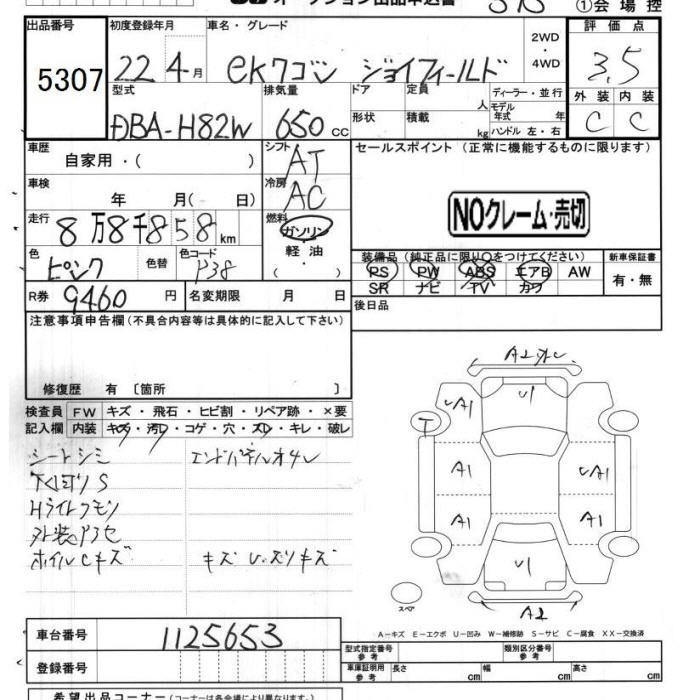 オークション出品申込書
①会場控
出品番号 初度登録年月 車名・グレード 2WD・4WD 評価点
5307 22年4月 eKワゴン ジョイフィールド 3.5
型式 排気量 ドア 定員 人 ディーラー・並行 外装 内装
DBA-H82W 650cc 形状 積載 kg モデル年式 年 ハンドル 左・右 C C
車歴 自家用・( ) シフト AT セールスポイント(正常に機能するものに限ります)
車検 年 月( 日) 冷房 AC
NOクレーム・売切
走行 8万8千858km 燃料 ガソリン・軽油・( )
色 ピンク 色替 色コード P38
装備品(純正品に限り○をつけてください) 新車保証書
PS PW ABS エアB AW 有・無
SR ナビ TV カワ
R券 9460円 名変期限 月 日 後日品
注意事項申告欄(不具合内容等は具体的に記入して下さい)
修復歴 有〔箇所 〕
検査員 FW キズ・飛石・ヒビ割・リペア跡・×要
記入欄 内装 キズ・汚レ・コゲ・穴・スレ・キレ・破レ
シートシミ エンドパネルオサレ
下廻リS
Hライトクモリ
外装アセ
ホイルCキズ キズ U.スリキズ
A2
U1
UA1
T
A1 UA1
A1 A1
U1
A2
スペア
A-キズ E-エクボ U-凹み W-補修跡 S-サビ C-腐食 XX-交換済
車台番号 1125653
型式指定番号 参考 類別区分番号 参考
登録番号
車庫証明用 参考 長さ cm 幅 cm 高さ cm
希望出品コーナー(コーナーは各会場により異なります。)